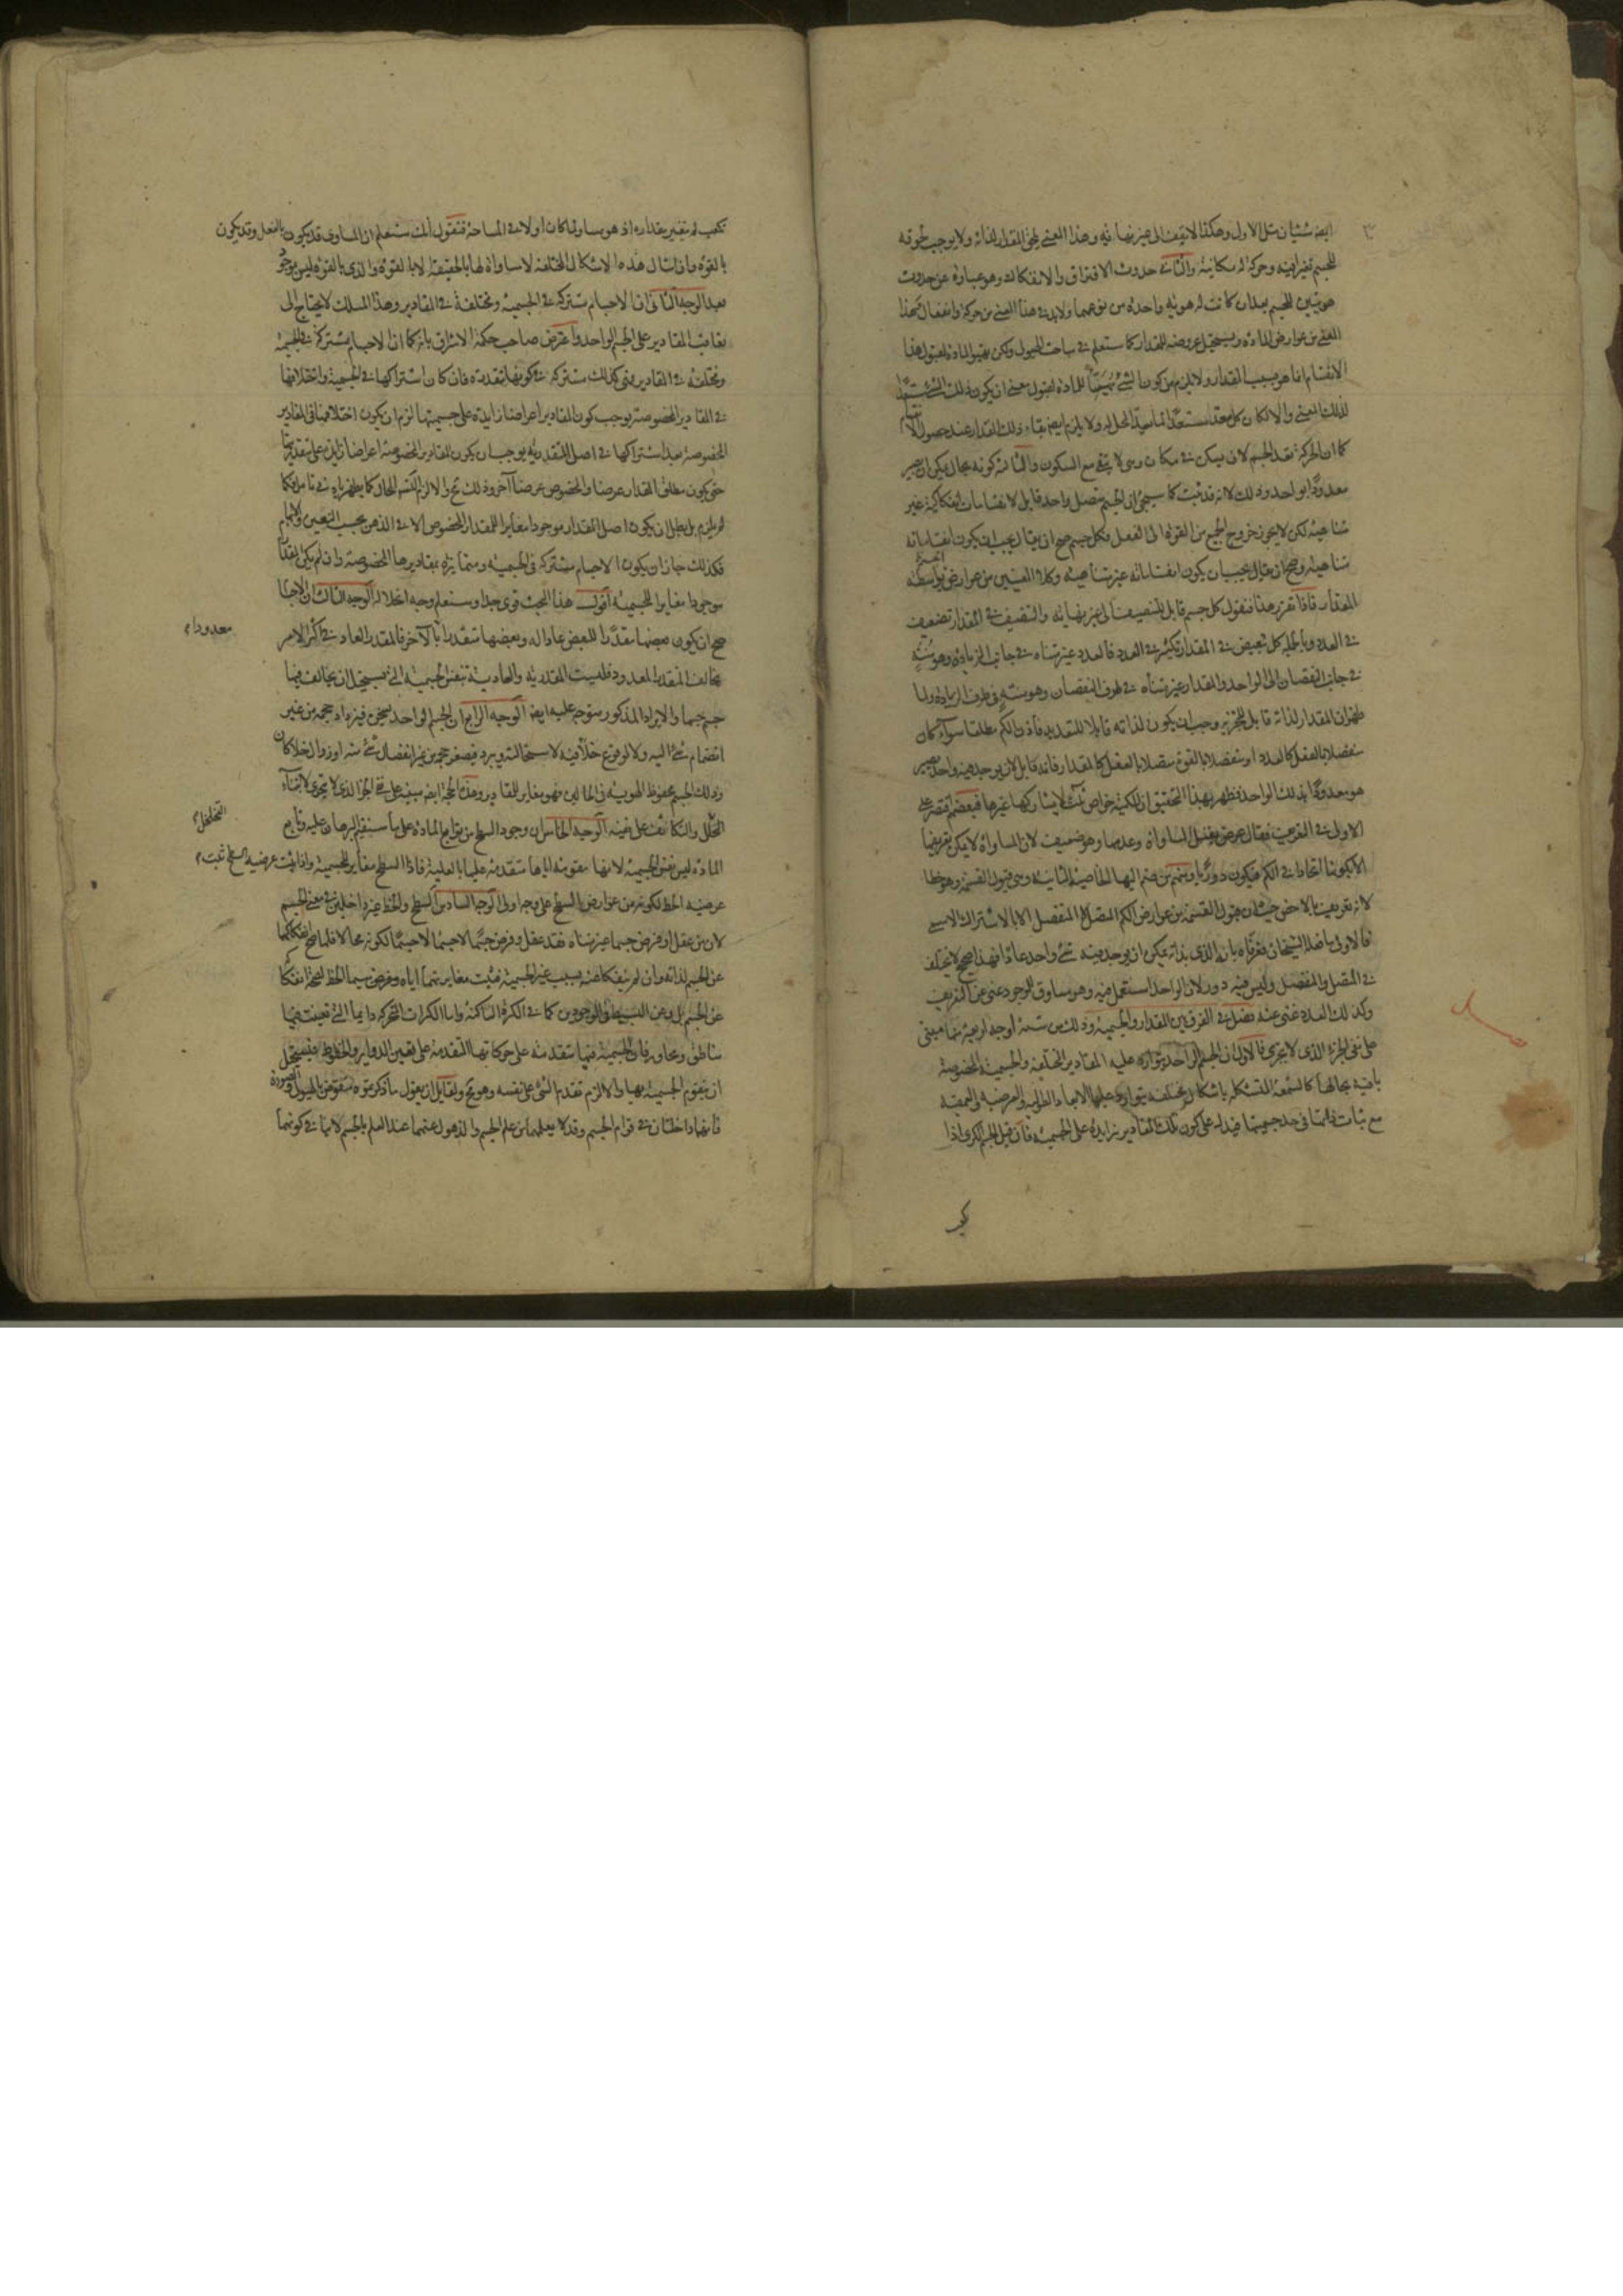 ايضا شيئان مثل الاول وهكذا لا يقف الى غير نهاية وهذا المعنى يلحق المقدار لذاته ولا يوجب لحوقه
للجسم تغيرا فيه وحركة له مكانية والثانى حدوث الافتراق والانفكاك وهو عبارة عن حدوث
هويتين للجسم بعد ان كانت له هوية واحدة من نوعهما ولا بد فى هذا المعنى من حركة وانفعال فهذا
المعنى من عوارض المادة ويستحيل عروضه للمقدار كما ستعلم فى مباحث الهيولى ولكن تهيؤ المادة لقبول هذا
الانقسام انما هو بسبب المقدار ولا يلزم من كون الشىء مهيئا للمادة لقبول معنى ان يكون ذلك الشىء مستعدا
لذلك المعنى والا لكان كل معد مستعدا لما يعد المحل له ولا يلزم ايضا بقاء ذلك المقدار عند حصول الانقسام
كما ان الحركة تعد الجسم لان يسكن فى مكان وهى لا تبقى مع السكون والثالثة كونه بحال يمكن ان يصير
معدودا بواحد وذلك لانه قد ثبت كما سيجىء ان الجسم متصل واحد قابل لانقسامات انفكاكية غير
متناهية لكن لا يجوز خروج الجميع من القوة الى الفعل فكل جسم صح ان يقال يجب ان يكون انقساماته
متناهية وصح ان يقال يجب ان يكون انقساماته غير متناهية وكلا المعنيين من عوارض الجسم بواسطة
المقدار فاذا تقرر هذا فنقول كل جسم قابل للتنصيفات الى غير نهاية والتنصيف فى المقدار تضعيف
فى العدد وبالجملة كل تبعيض فى المقدار تكثير فى العدد فالعدد غير متناه فى جانب الزيادة وهو منته
فى جانب النقصان الى الواحد والمقدار غير متناه فى طرف النقصان وهو منته فى طرف الزيادة ولما
ظهر ان المقدار لذاته قابل للتجزية وجب ان يكون لذاته قابلا للتقدير فاذن الكم مطلقا سواء كان
منفصلا بالفعل كالعدد او منفصلا بالقوة متصلا بالفعل كالمقدار فانه قابل لان يوجد فيه واحد يصير
هو معدودا بذلك الواحد فظهر بهذا التحقيق ان للكمية خواص ثلث لا يشاركها غيرها فبعضهم اقتصر على
الاولى فى التعريف فقال عرض يقبل المساواة وعدمها وهو ضعيف لان المساواة لا يمكن تعريفها
الا بكونها اتحادا فى الكم فيكون دوريا ومنهم من ضم اليها الخاصية الثانية وهى قبول القسمة وهو خطا
لانه تعريف بالاخص حيث ان قبول القسمة من عوارض الكم المتصل لا المنفصل الا بالاشتراك الاسمى
فالاولى ما فعله الشيخان فعرفاه بانه الذى بذاته يمكن ان يوجد فيه شىء واحد عادا فهذا صحيح لا يختلف
فى المتصل والمنفصل وليس فيه دور لان الواحد استعمل فيه وهو مساوق للوجود غنى عن التعريف
وكذلك العدد غنى عنه فصل فى الفرق بين المقدار والجسمية وذلك من ستة اوجه اربعة منها مبتنى
على نفى الجزء الذى لا يتجزى فالاول ان الجسم الواحد يتوارد عليه المقادير المختلفة والجسمية المخصوصة
باقية بحالها كالشمعة المتشكلة باشكال مختلفة يتوارد عليها الابعاد الطولية والعرضية والعمقية
مع ثبات ذاتها فى حد جسميتها فيدل على كون تلك المقادير زايدة على الجسمية فان قيل الجسم الكرى اذا
تكعب لم يتغير مقداره اذ هو مساو لما كان اولا فى المساحة فنقول انك ستعلم ان المساوى قد يكون بالفعل وقد يكون
بالقوة وان امثال هذه الاشكال المختلفة لا مساواة لها بالحقيقة الا بالقوة والذى بالقوة ليس بموجود
بعد الوجه الثانى ان الاجسام مشتركة فى الجسمية ومختلفة فى المقادير وهذا المسلك لا يحتاج الى
تعاقب المقادير على الجسم الواحد واعترض صاحب حكمة الاشراق بانه كما ان الاجسام مشتركة فى الجسمية
ومختلفة فى المقادير فهى كذلك مشتركة فى كونها متقدرة فان كان اشتراكها فى الجسمية واختلافها
فى المقادير المخصوصة يوجب كون المقادير اعراضا زايدة على جسميتها لزم ان يكون اختلافها فى المقادير
المخصوصة بعد اشتراكها فى اصل المتقدرية يوجب ان يكون المقادير المخصوصة اعراضا زايدة على متقدريتها
حتى يكون مطلق المقدار عرضا والمخصوص عرضا آخر وذلك مح والا لزم التسلسل المحال كما يظهر بادنى تامل فكما
لم يلزم بل بطل ان يكون اصل المقدار موجودا مغايرا للمقدار المخصوص الا فى الذهن بحسب التعيين والابهام
فكذلك جاز ان يكون الاجسام مشتركة فى الجسمية ومتمايزة بمقاديرها المخصوصة وان لم يكن المقدار
موجودا مغايرا للجسمية اقول هذا البحث قوى جدا وستعلم وجه انحلاله الوجه الثالث ان الاجسام
صح ان يكون بعضها مقدرا للبعض عادا له وبعضها متقدرا بالآخر فالمقدر العاد فى اكثر الامر
معدودا م
يخالف المتقدر المعدود فليست المقدرية والعادية بنفس الجسمية التى يستحيل ان يخالف فيها
جسم جسما والايراد المذكور متوجه عليه ايضا الوجه الرابع ان الجسم الواحد يسخن فيزداد حجمه من غير
انضمام شىء اليه ولا لوقوع خلأ فيه لاستحالته ويبرد فيصغر حجمه من غير انفصال شىء منه او زوال خلأ كان
وذلك الجسم محفوظ الهوية فى الحالين فهو مغاير للمقادير وهذه الحجة ايضا مبنية على نفى الجزء الذى لا يتجزى لابتناء
التخلخل م
التخلل والتكاثف على نفيه الوجه الخامس ان وجود السطح من توابع المادة على ما سنقيم البرهان عليه وتابع
المادة ليس نفس الجسمية لانها مقومة اياها متقدمة عليها بالعلية فاذا السطح مغاير للجسمية واذا ثبت عرضية السطح ثبت م
عرضية الخط لكونه من عوارض السطح على وجه اولى الوجه السادس السطح والخط غير داخلين فى معنى الجسم
لان من عقل او فرض جسما غير متناه فقد عقل وفرض جسما لا جسما لا جسما لكونه محالا فلما صح انفكاكهما
عن الجسم لذاته وان لم ينفكا عنه بسبب غير الجسمية فثبت مغايرتهما اياه ومفروض سيما الخط لصحة انفكاكه
عن الجسم بل وعن البسيط فى الوجودين كما فى الكرة الساكنة واما الكرات المتحركة دايما التى تعينت فيها
مناطق ومحاور فان الجسمية فيها متقدمة على حركاتها المتقدمة على تعين الدواير والخطوط فيستحيل
ان يتقوم الجسمية بها والا لزم تقدم الشىء على نفسه وهو مح ولقايل ان يقول ما ذكرتموه منقوض بالهيولى والصورة
فانهما داخلتان فى قوام الجسم وقد لا يعلمهما من علم الجسم والذهول عنهما عند العلم بالجسم لا ينافى كونهما